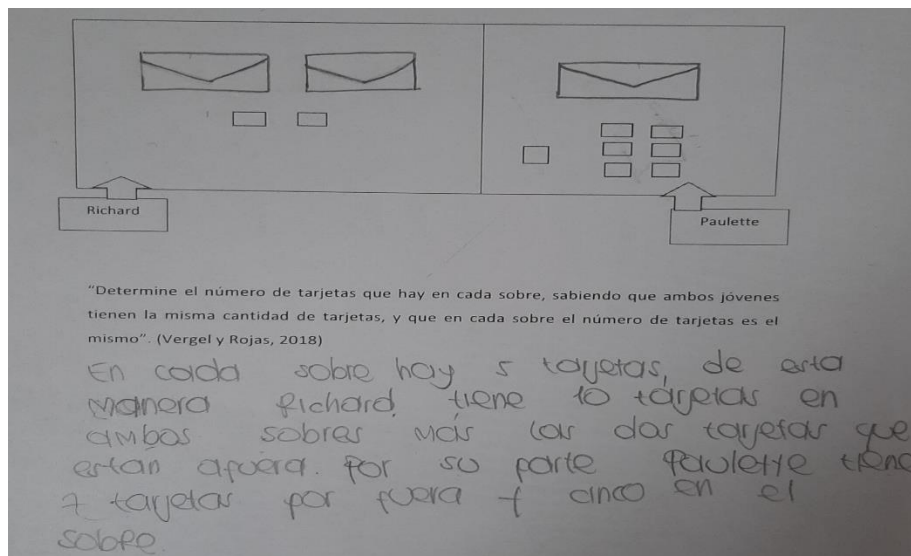 Richard
Paulette
“Determine el número de tarjetas que hay en cada sobre, sabiendo que ambos jóvenes
tienen la misma cantidad de tarjetas, y que en cada sobre el número de tarjetas es el
mismo”. (Vergel y Rojas, 2018)
En cada sobre hay 5 tarjetas, de esta
manera Richard, tiene 10 tarjetas en
ambos sobres más las dos tarjetas que
están afuera. Por su parte Paulette tiene
7 tarjetas por fuera y cinco en el
sobre.